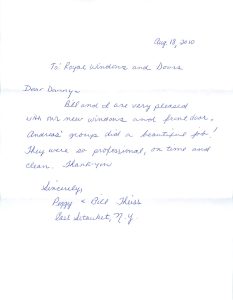 Aug. 18, 2010
To: Royal Windows and Doors
Dear Danny,
Bill and I are very pleased
with our new windows and front door.
Andreas' group did a beautiful job!
They were so professional, on time and
clean. Thank you
Sincerely,
Peggy & Bill Theiss
East Setauket, N.Y.